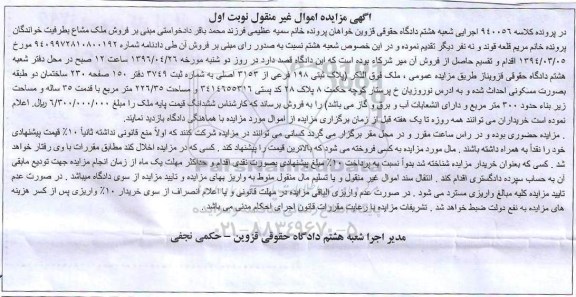 آگهی مزایده اموال غیر منقول نوبت اول
در پرونده کلاسه ۹۴۰۰۵۶ اجرایی شعبه هشتم دادگاه حقوقی قزوین خواهان پرونده خانم سمیه عظیمی فرزند محمد باقر دادخواستی مبنی بر فروش ملک مشاع بطرفیت خواندگان
پرونده خانم مریم قلعه قوند و نه نفر دیگر تقدیم نموده و در این خصوص شعبه هشتم نسبت به صدور رای مبنی بر فروش آن طی دادنامه شماره ۹۴۰۹۹۷۲۸۱۰۸۰۰۱۹۲ مورخ
۱۳۹۴/۰۳/۰۵ اقدام و تقسیم حاصل از فروش آن میر شرکاء بوده است که این دادگاه قصد دارد در روز دو شنبه مورخه ۱۳۹۶/۰۴/۲۶ ساعت ۱۲ صبح در محل دفتر شعبه
هشتم دادگاه حقوقی قزوین از طریق مزایده عمومی ، ملک فوق الذکر (پلاک ثبتی ۱۹۸ فرعی از ۳۱۵۳ اصلی به شماره ثبت ۳۷۴۹ دفتر ۱۵۰ صفحه ۲۳۰ ساختمان دو طبقه
بصورت مسکونی احداث شده و به آدرس نوروزیان خ پرستار کوچه حکمت ۸ پلاک ۲۸ کد پستی ۳۴۱۴۶۵۵۳۱۶ مساحت عرصه ۲۲۶/۳۵ متر مربع با قدمت ۳۵ ساله و مساحت
زیر بناه حدود ۳۰۰ متر مربع و دارای انشعابات آب و برق و گاز می باشد) را به فروش برساند که کارشناس ششدانگ قیمت پایه ملک را مبلغ ۶/۳۰۰/۰۰۰/۰۰۰ ریال اعلام
نموده است خریداران می توانند همه روزه تا یک هفته قبل از زمان برگزاری مزایده از اموال مورد مزایده با هماهنگی دادگاه بازدید نمایند.
. مزایده حضوری بوده و در راس ساعت مقرر و در محل مقرر برگزار می گردد کسانی می توانند در مزایده شرکت کنند که اولاً منع قانونی نداشته ثانیاً ۱۰٪ قیمت پیشنهادی
خود را نقداً به همراه داشته باشند . مال مورد مزایده به کسی فروخته می شود که بالاترین قیمت را پیشنهاد دهد . کسی که در مزایده اخلال کند مطابق مقررات با وی رفتار خواهد
شد . کسی که بعنوان خریدار مزایده شناخته شد بدواً نسبت به پرداخت ۱۰٪ مبلغ پیشنهادی بصورت نقدی اقدام و حداکثر مهلت یک ماه از زمان انجام مزایده جهت تودیع مابقی
آن به حساب سپرده دادگستری اقدام کند . انتقال سند اموال غیر منقول و یا تسلیم مال منقول منوط به واریز بهای مزایده و تایید مزایده از سوی دادگاه میباشد . در صورت عدم
تایید مزایده کلیه مبالغ واریزی مسترد می شود . در صورت عدم واریزی الباقی مزایده در مهلت قانونی و یا اعلام انصراف از سوی خریدار ۱۰٪ واریزی پس از کسر هزینه
های مزایده به نفع دولت ضبط خواهد شد . تشریفات مزایده با رعایت مقررات قانون اجرای احکام مدنی می باشد.
۰۲۱-۸۸۳۴۹۶۷۰-۵
مدیر اجرا شعبه هشتم دادگاه حقوقی قزوین – حکمی نجفی